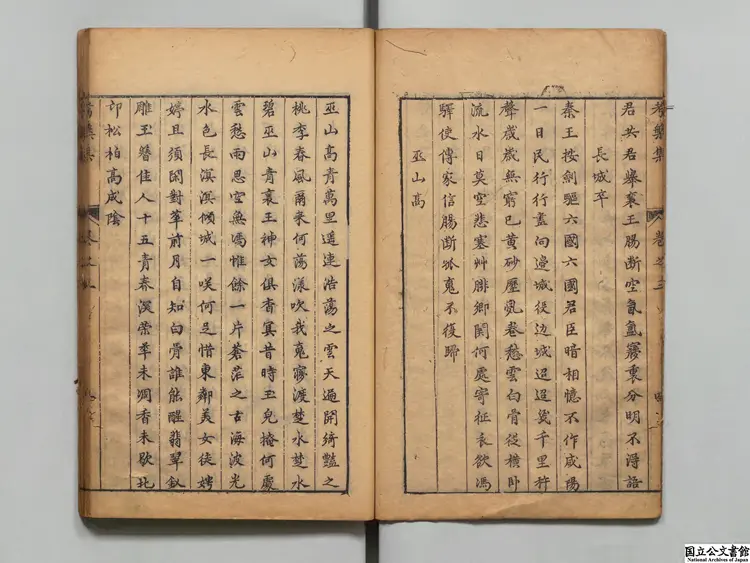 考槃集
卷之三
君共君舉裏王腸斷空氤氳寢裏分明不淂語
長城卒
秦王按劍驅六國六國君臣暗相憶不作咸陽
一日民行行盡向邊城從边城迢迢幾千里杵
聲歲歲無窮已黃砂壓鬼卷愁雲白骨從橫卧
流水日莫空悲塞艸腓鄉關何處寄征衣欲馮
驛使傳家信腸斷孤䰟不復歸
巫山高
巫山高青萬里遥連浩蕩之雲天遍開綺豔之
桃李春風爾来何蕩漾吹我䰟寥渡楚水楚水
碧巫山青襄王神女俱杳冥昔時玉皃掩何處
雲愁雨思空無慿惟餘一片蒼茫之古海波光
水色長溟溟傾城一咲何足惜東鄰美女徒娉
婷且須鬪對華前月自知白骨誰能醒翡翠釵
雕玉簪佳人十五青春深榮華未凋香未歇北
邙松柏高成陰
国立公文書館
National Archives of Japan